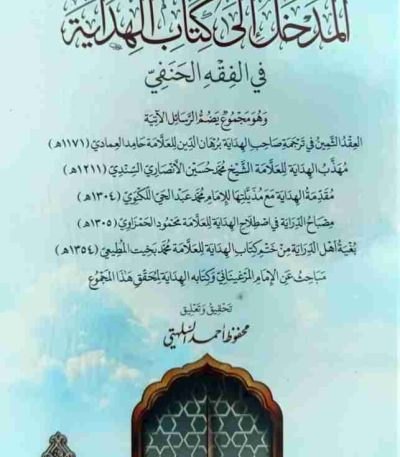 المدخل إلى كتاب الهداية
في الفقه الحنفي
وهو مجموع يضم الرسائل الآتية
العقد الثمين في ترجمة صاحب الهداية برهان الدين للعلامة حامد العمادي (١١٧١هـ)
مهذب الهداية للعلامة الشيخ محمد حسين الأنصاري السندي (١٢١١هـ)
مقدمة الهداية مع مذيلتها للإمام محمد عبد الحي اللكنوي (١٣٠٤هـ)
مصباح الدراية في اصطلاح الهداية للعلامة محمود الحمزاوي (١٣٠٥هـ)
بغية أهل الدراية من ختم كتاب الهداية للعلامة محمد بخيت المطيعي (١٣٥٤هـ)
مباحث عن الإمام المرغيناني وكتابه الهداية لمحقق هذا المجموع
تحقيق وتعليق
محفوظ أحمد السلهتي